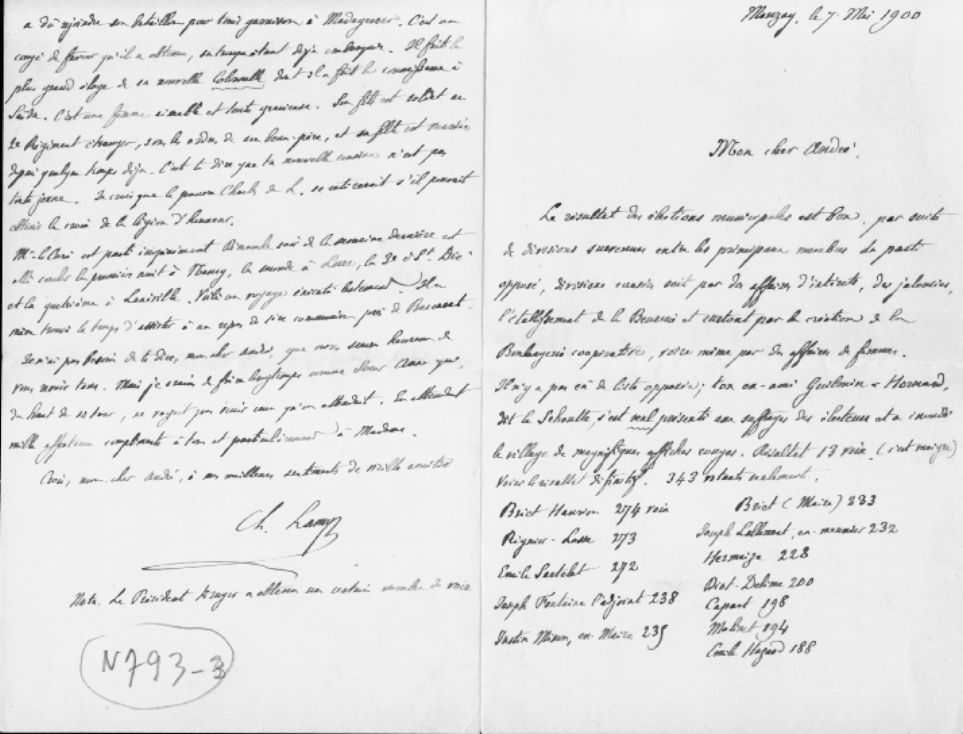 Mouzay, le 7 Mai 1900
Mon cher André,
Le résultat des élections municipales est bon, par suite
de divisions survenues entre les principaux membres du parti
opposé, divisions causées soit par des affaires d'intérêts, des jalousies,
l'établissement de la et surtout par la création de la
Boulangerie coopérative, voire même par des affaires de femmes.
Il n'y a pas eû de liste opposée; ton ex-ami Guilmin-Hernand,
dit le Schoulte, s'est mal présenté aux suffrages des électeurs et a inondé
le village de magnifiques affiches rouges. Résultat 13 voix. (c'est maigre)
Voici le résultat définitif. 343 votants seulement.
Briet Hauvion 274 voix
Rignier-Lasse 273
Emile Sertelet 272
Joseph Fontaine l'adjoint 238
Justin ex-Maire 235
Briet (Maire) 233
Joseph Lallemant, ex-meunier 232
228
Diot-Delime 200
Capart 198
194
Emile Hazard 188
a dû rejoindre son bataillon pour tenir garnison à Madagascar. C'est un
congé de faveur qu'il a obtenu, sa troupe étant déjà embarquée. Il fait le
plus grand éloge de sa nouvelle Colonelle dont il a fait la connaissance à
Saïda. C'est une femme aimable et toute gracieuse. Son fils est soldat au
2e Régiment étranger, sous les ordres de son beau-père, et sa fille est mariée
depuis quelque temps déjà. C'est te dire que ta nouvelle cousine n'est pas
toute jeune. Je crois que le pauvre Charles de L. se retirerait s'il pouvait
obtenir la croix de la légion d'honneur.
Mr le Curé est parti inopinément Dimanche soir de la semaine dernière et
allé coucher la première nuit à Nancy, la seconde à Lure, la 3e à St. Dié
et la quatrième à Lunéville. Voilà un voyage exécuté lestement. Il a
même trouvé le temps d'assister à un repas de 1ère communion près de
Je n'ai pas besoin de te dire, mon cher André, que nous serons heureux de
vous revoir tous. Mais je crains de faire longtemps comme Sœur Anne qui,
du haut de sa tour, ne voyait pas venir ceux qu'on attendait. En attendant
mille affectueux compliments à tous et particulièrement à Madame.
Crois, mon cher André, à mes meilleurs sentiments de vieille amitié
Ch. Lamy
Nota. Le Président Kruger a obtenu un certain nombre de voix
N793-3